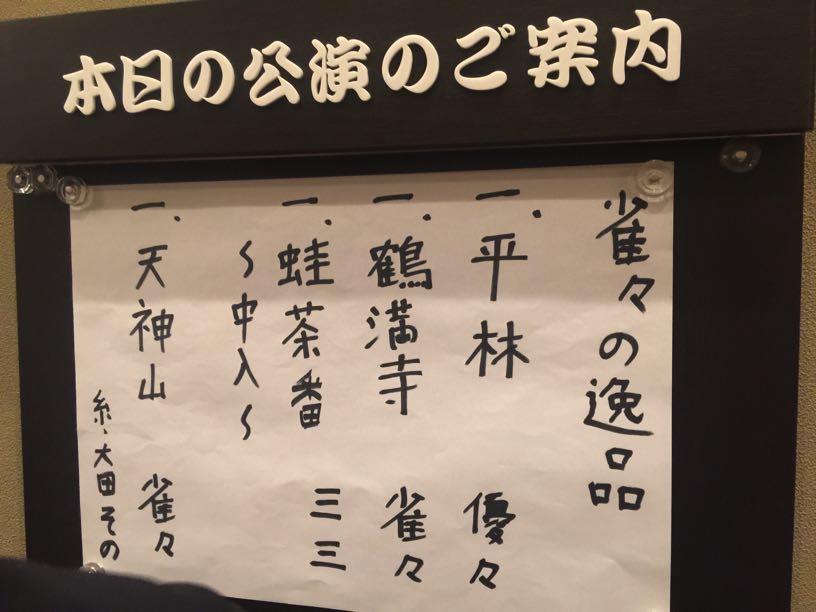 本日の公演のご案内
雀々の逸品
一、平林 優々
一、鶴満寺 雀々
一、蛙茶番 三三
〜中入〜
一、天神山 雀々
糸、大田その